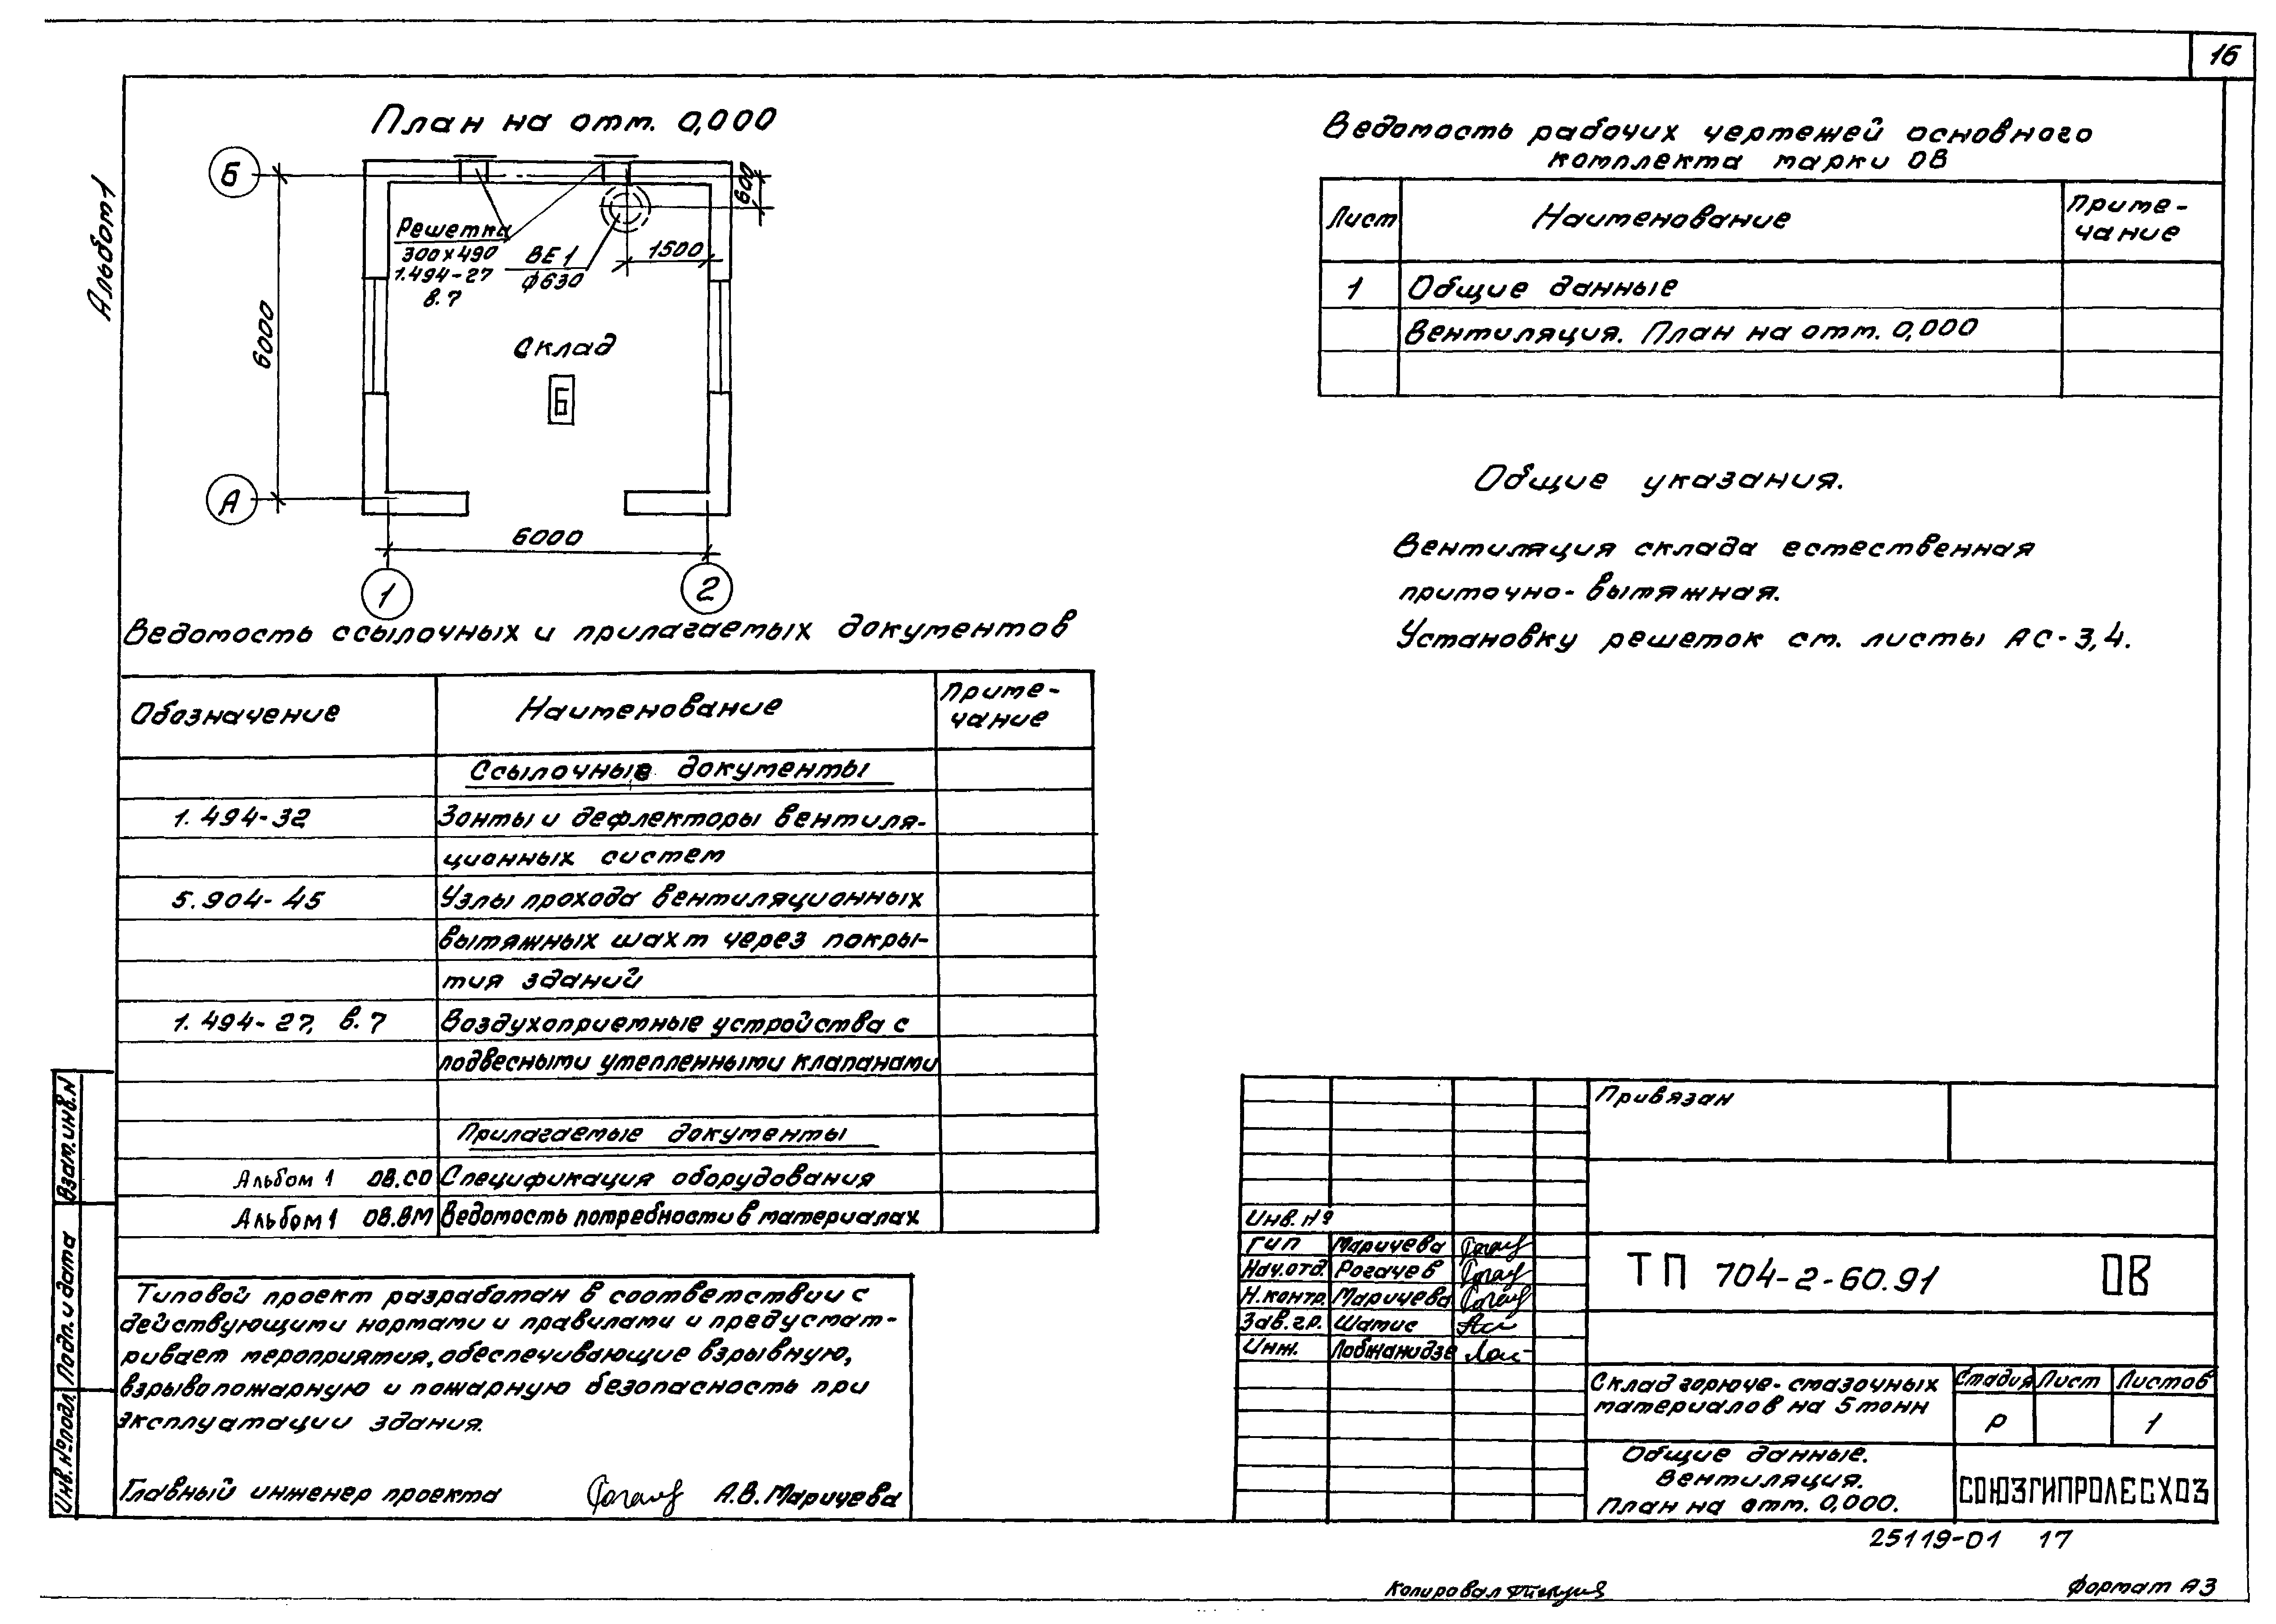 16
Альбом 1
План на отм. 0,000
Б
600
Решетка
300х490
1.494-27
в. 7
ВЕ 1
ф630
1500
6000
Склад
Б
А
6000
1
2
Ведомость рабочих чертежей основного
комплекта марки ОВ
Лист
Наименование
Приме-
чание
1
Общие данные
Вентиляция. План на отм. 0,000
Общие указания.
Вентиляция склада естественная
приточно-вытяжная.
Установку решеток см. листы АС-3,4.
Ведомость ссылочных и прилагаемых документов
Обозначение
Наименование
Приме-
чание
Ссылочные документы
1.494-32 Зонты и дефлекторы вентиля-
ционных систем
5.904-45 Узлы прохода вентиляционных
вытяжных шахт через покры-
тия зданий
1.494-27, в.7 Воздухоприемные устройства с
подвесными утепленными клапанами
Прилагаемые документы
Альбом 1 ОВ.СО Спецификация оборудования
Альбом 1 ОВ.ВМ Ведомость потребности в материалах
Типовой проект разработан в соответствии с
действующими нормами и правилами и предусмат-
ривает мероприятия, обеспечивающие взрывную,
взрывопожарную и пожарную безопасность при
эксплуатации здания.
Главный инженер проекта А.В. Маричева
Взам. инв. N
Подп. и дата
Инв. № подл.
Привязан
Инв. №
ГИП Маричева
Нач. отд. Рогачев
Н. контр. Маричева
Зав. гр. Шатис
Инж. Лобжанидзе
ТП 704-2-60.91 ОВ
Склад горюче-смазочных
материалов на 5 тонн
Стадия Лист Листов
Р 1
Общие данные.
Вентиляция.
План на отм. 0,000.
СОЮЗГИПРОЛЕСХОЗ
25119-01 17
Копировал
Формат А3